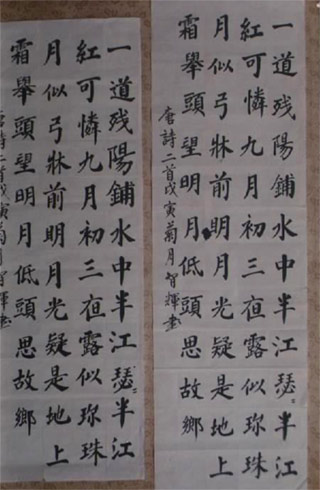 一道残陽鋪水中半江瑟〻半江
紅可憐九月初三亱露似珎珠
月似弓牀前明月光疑是地上
霜舉頭望明月低頭思故鄉
唐詩二首戊寅菊月智輝書
一道残陽鋪水中半江瑟〻半江
紅可憐九月初三亱露似珎珠
月似弓牀前明月光疑是地上
霜舉頭望明月低頭思故鄉
唐詩二首戊寅菊月智輝書